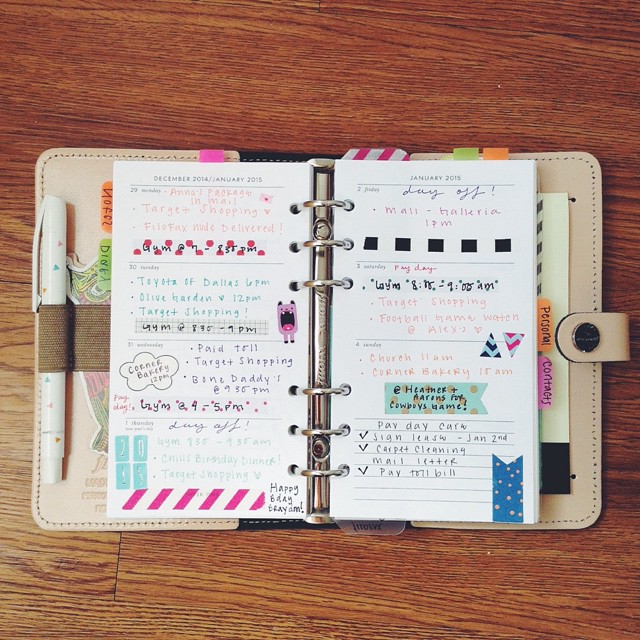 DECEMBER 2014/JANUARY 2015
29 monday
Anna's Package
in mail
• Target Shopping
• Filofax nude Delivered!
Gym @ 7 - 8:30 pm
30 tuesday
• Toyota of Dallas 6pm
• Olive Garden 12pm
• Target Shopping!
Gym @ 830 - 9pm
31 wednesday
• Paid toll
• Target Shopping
• Bone Daddy's
@ 9:30 pm
CORNER
BAKERY
12pm
Pay
day!
Gym @ 4 - 5pm
1 thursday
day off!
Gym 830 - 930am
• Chilis Birthday Dinner!
• Target Shopping
20
15
Happy
Bday
JANUARY 2015
2 friday
day off!
Mall - Galleria
1pm
3 saturday
Pay day
• Target Shopping
• Football Game Watch
@ Alex's
4 sunday
• Church 11am
• Corner Bakery 10am
@ Heather +
Aarons for
Cowboys Game!
Pay day care
✓ Sign lease - Jan 2nd
✓ Carpet Cleaning
Mail letter
✓ Pay toll bill
Notes
Diary
Personal
Contacts